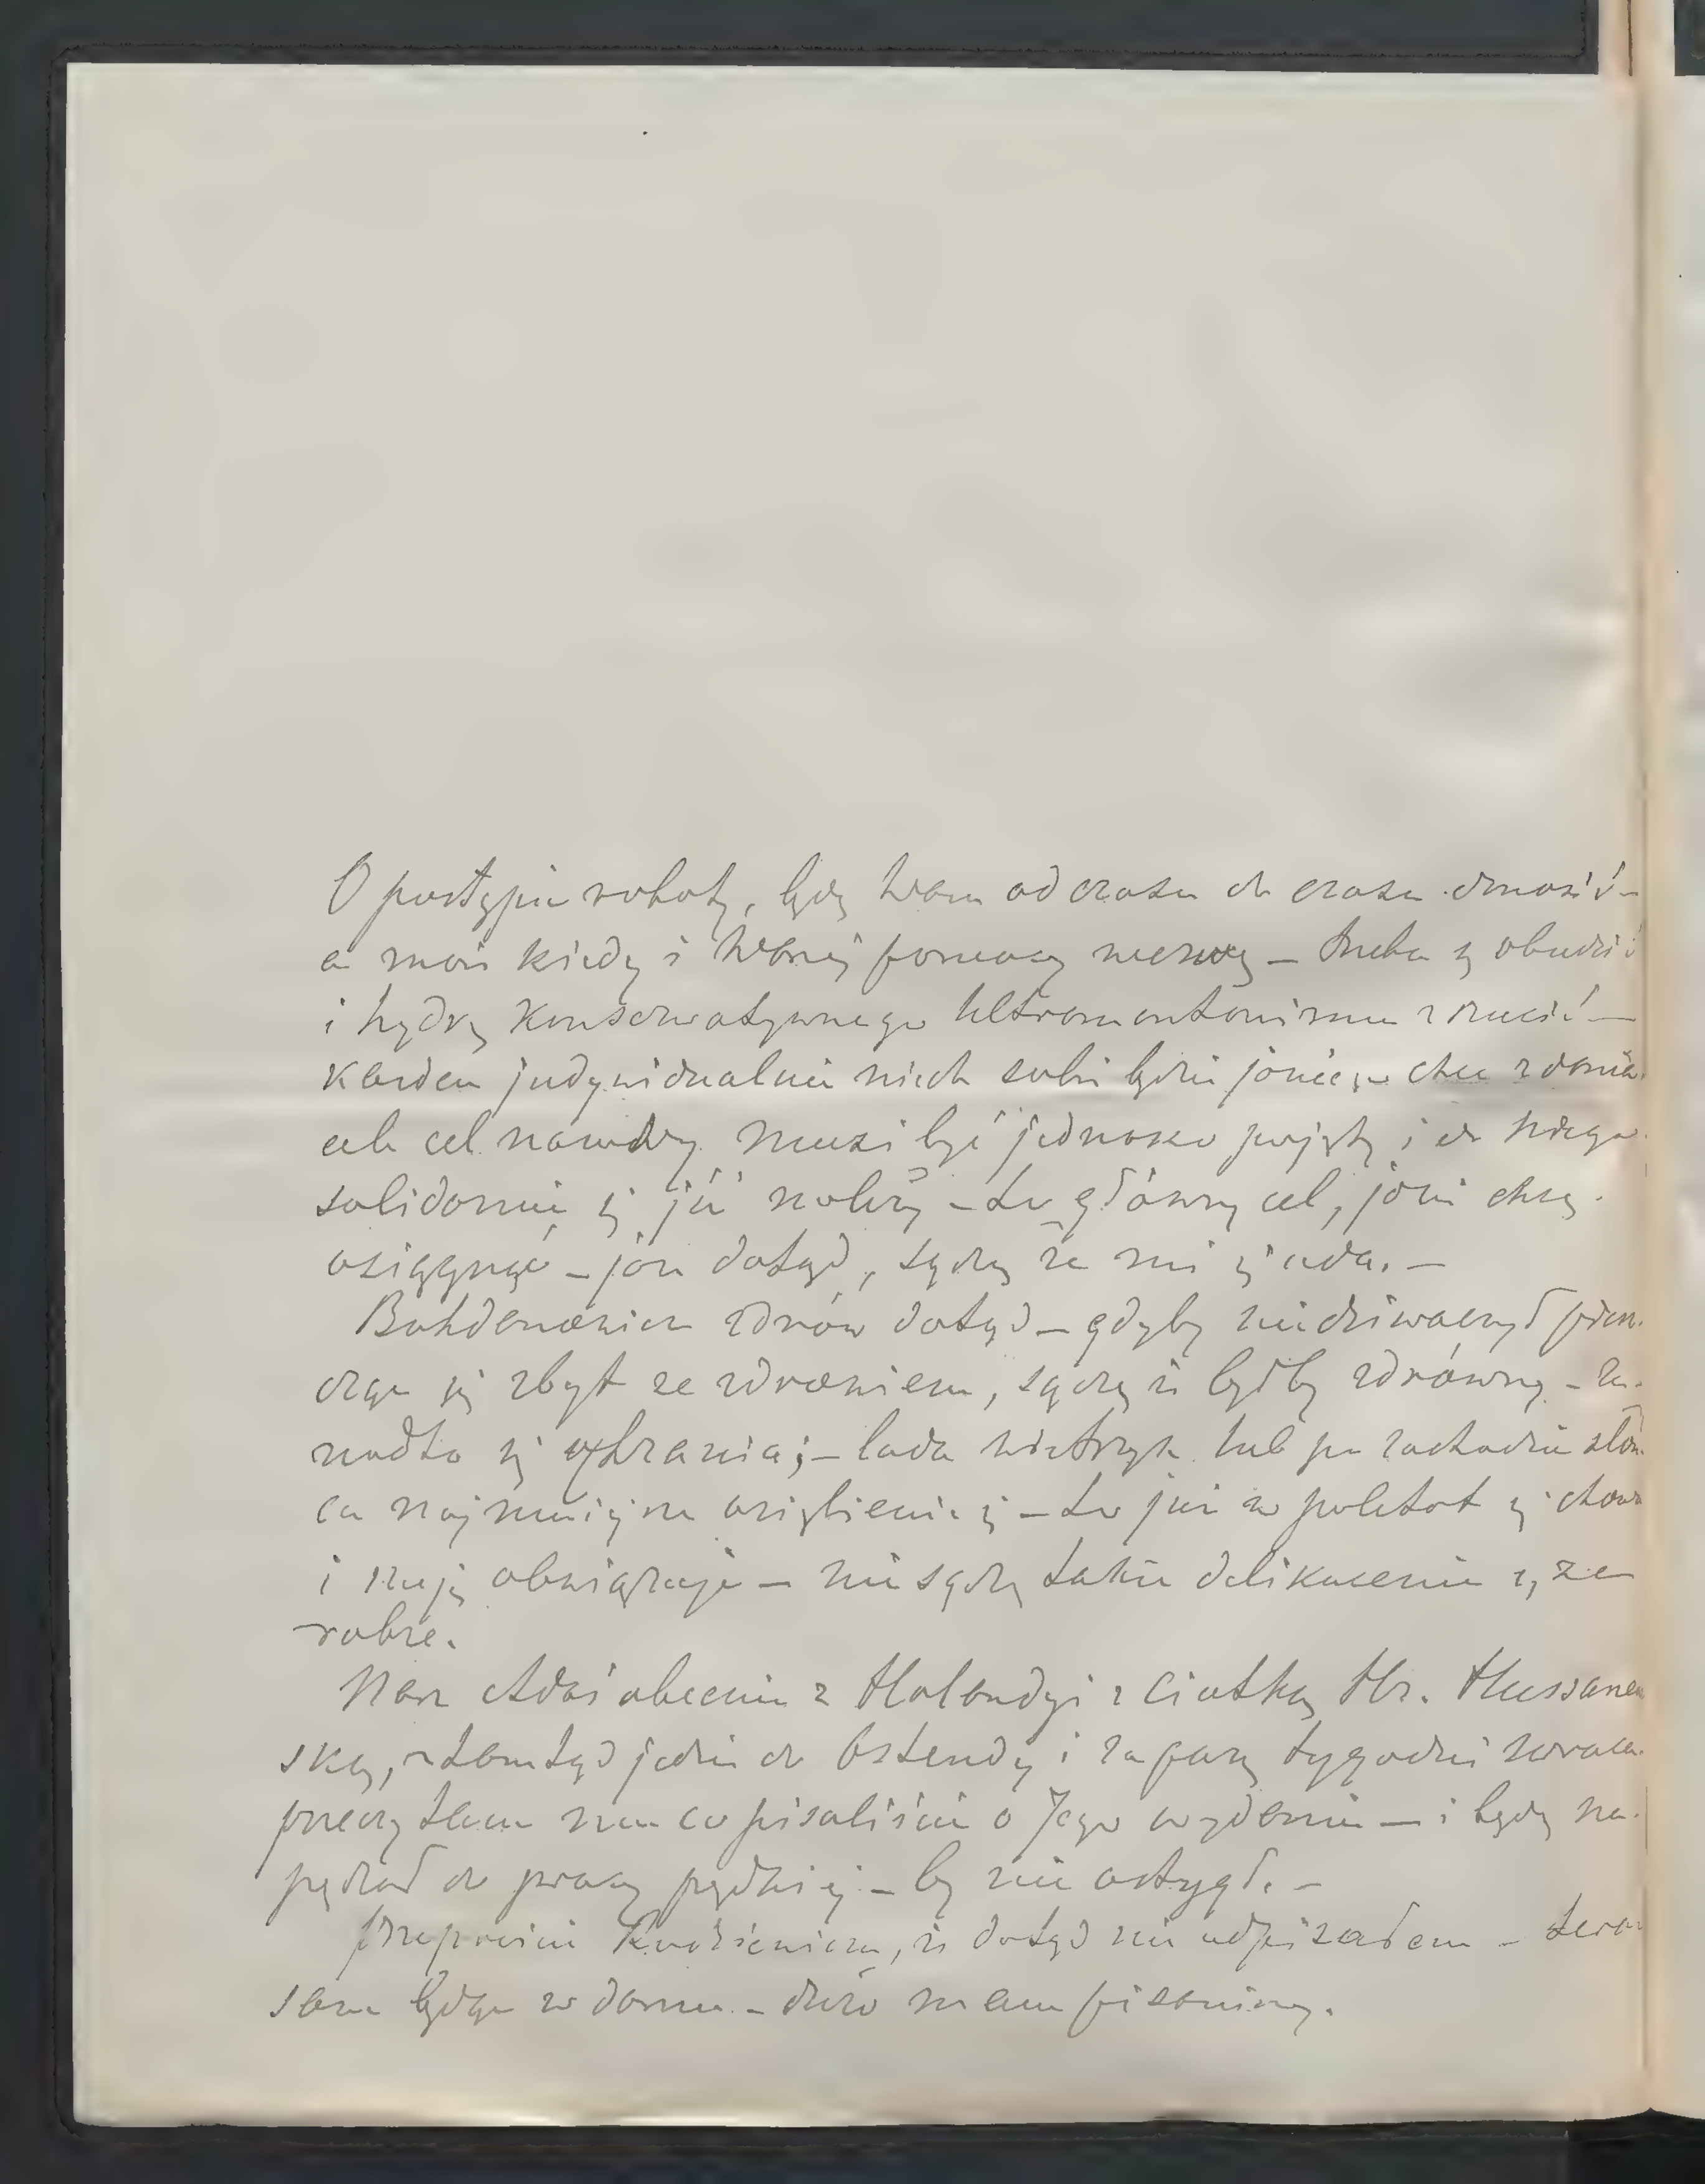 O postępie roboty, będę Wam od czasu do czasu donosić –
a może kiedy i Waszej pomocy wezwę – trzeba się obudzić
i hydrę konserwatywnego Ultramontanizmu zrzucić –
Każden indywidualnie niech sobie będzie jakiego chce zdania
ale cel narodowy musi być jednako pojęty i do niego
solidarnie się iść należy – to główny cel, jaki chcę
osiągnąć – jak dotąd, sądzę że mi się uda. –
Bohdanowicz zdrów dotąd – gdyby nie dziwaczył
się zbyt ze zdrowiem, sądzę iż byłby zdrowszy – za-
nadto się ochrania; – lada wietrzyk lub po zachodzie słoń
ca najmniejsze oziębienie – to już w paletot się chowa
i szyję obwiązuje – nie sądzę takie delikacenie się za
zdobre.
Nasz Adaś obecnie z Holandyi z Ciotką Hr.
ską, ztamtąd jedzie do Ostendy i za parę tygodni wraca
przeczytam mu co pisaliście o Jego wydaniu – i będę na-
pędzał do pracy prędkiej – by nie ostygł. –
Przeproście, iż dotąd nie odpisałem – teraz
sam będąc w domu – dużo mam pisaniny.